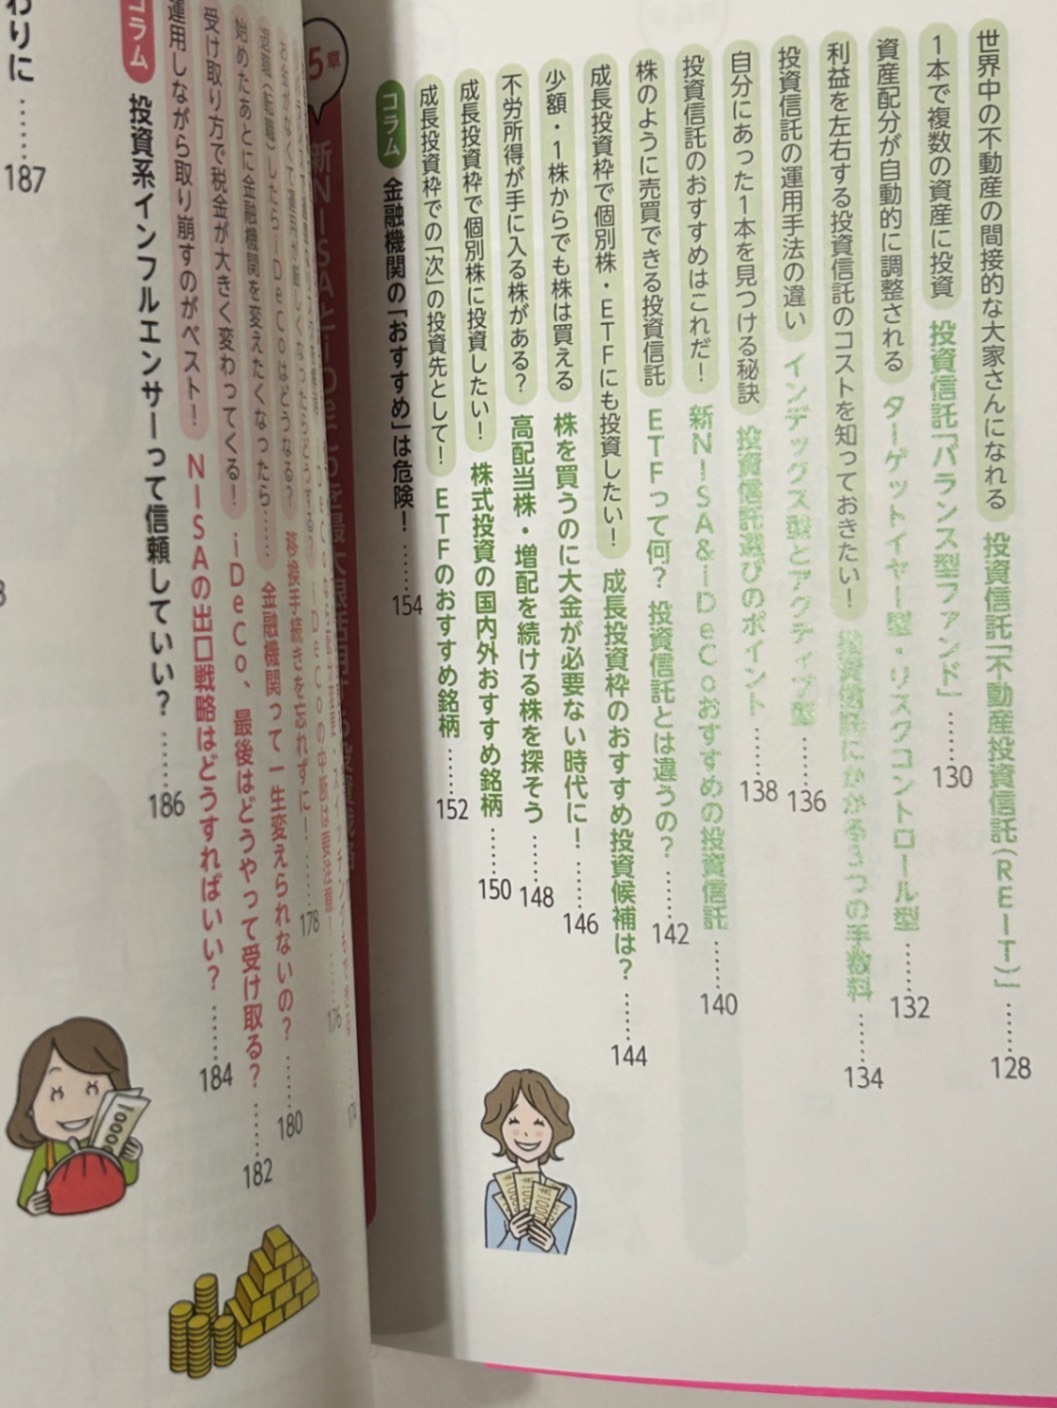 世界中の不動産の間接的な大家さんになれる 投資信託「不動産投資信託(REIT)」……128
1本で複数の資産に投資 投資信託「バランス型ファンド」……130
資産配分が自動的に調整される ターゲットイヤー型・リスクコントロール型……132
利益を左右する投資信託のコストを知っておきたい! 投資信託にかかる3つの手数料……134
投資信託の運用手法の違い インデックス型とアクティブ型……136
自分にあった1本を見つける秘訣 投資信託選びのポイント……138
投資信託のおすすめはこれだ! 新NISA&iDeCoおすすめの投資信託……140
株のように売買できる投資信託 ETFって何? 投資信託とは違うの?……142
成長投資枠で個別株・ETFにも投資したい! 成長投資枠のおすすめ投資候補は?……144
少額・1株からでも株は買える 株を買うのに大金が必要ない時代に!……146
不労所得が手に入る株がある? 高配当株・増配を続ける株を探そう……148
成長投資枠で個別株に投資したい! 株式投資の国内外おすすめ銘柄……150
成長投資枠での「次」の投資先として! ETFのおすすめ銘柄……152
コラム 金融機関の「おすすめ」は危険!……154
5章 新NISAとiDeCoを最大限活用
174
176
iDeCoの中断は要注意!
退職(転職)したらiDeCoはどうなる? 移換手続きを忘れずに!……178
始めたあとに金融機関を変えたくなったら…… 金融機関って一生変えられないの?……180
受け取り方で税金が大きく変わってくる! iDeCo、最後はどうやって受け取る?……182
運用しながら取り崩すのがベスト! NISAの出口戦略はどうすればいい?……184
コラム 投資系インフルエンサーって信頼していい?……186
わりに……187